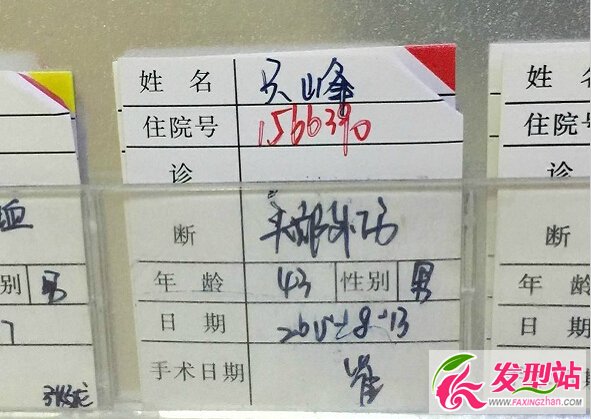 姓名 吴峰
住院号 1566390
诊
断 头部外伤
年龄 43 性别 男
日期 2015-8-13
手术日期 崔
别 男
7
姓
住院
诊
断
年龄
日期
手术日
发型站
WWW.FAXINGZHAN.COM